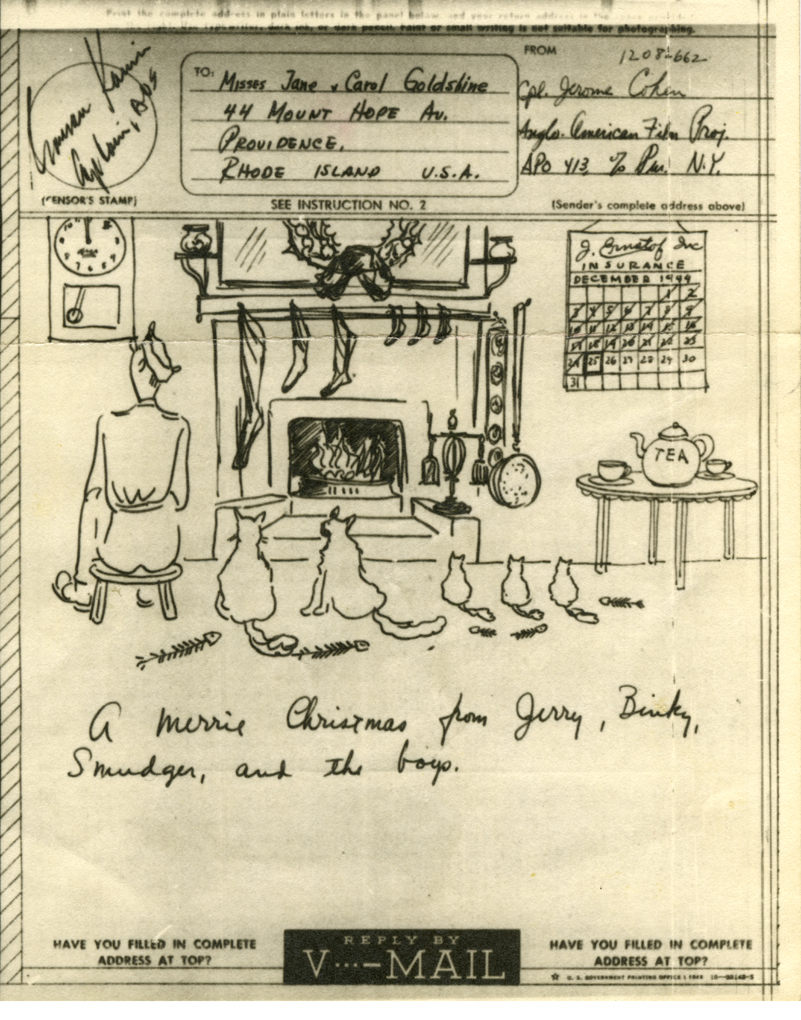 Print the complete address in plain letters in the panel below, and your return address in the
typewriter, dark ink, or dark pencil. Paint or small writing is not suitable for photographing.
(CENSOR'S STAMP)
TO: MISSES JANE & CAROL GOLDSHINE
44 MOUNT HOPE AV.
PROVIDENCE,
RHODE ISLAND U.S.A.
SEE INSTRUCTION NO. 2
FROM
1208-662
Cpl. Jerome Cohen
Anglo-American Film Proj.
APO 413 % Pm. N.Y.
(Sender's complete address above)
J. Ernstof Inc
INSURANCE
DECEMBER 1944
1 2
3 4 5 6 7 8 9
10 11 12 13 14 15 16
17 18 19 20 21 22 23
24 25 26 27 28 29 30
31
TEA
A Merrie Christmas from Jerry, Binky,
Smudger, and the boys.
HAVE YOU FILLED IN COMPLETE
ADDRESS AT TOP?
REPLY BY
V···—MAIL
HAVE YOU FILLED IN COMPLETE
ADDRESS AT TOP?
U. S. GOVERNMENT PRINTING OFFICE